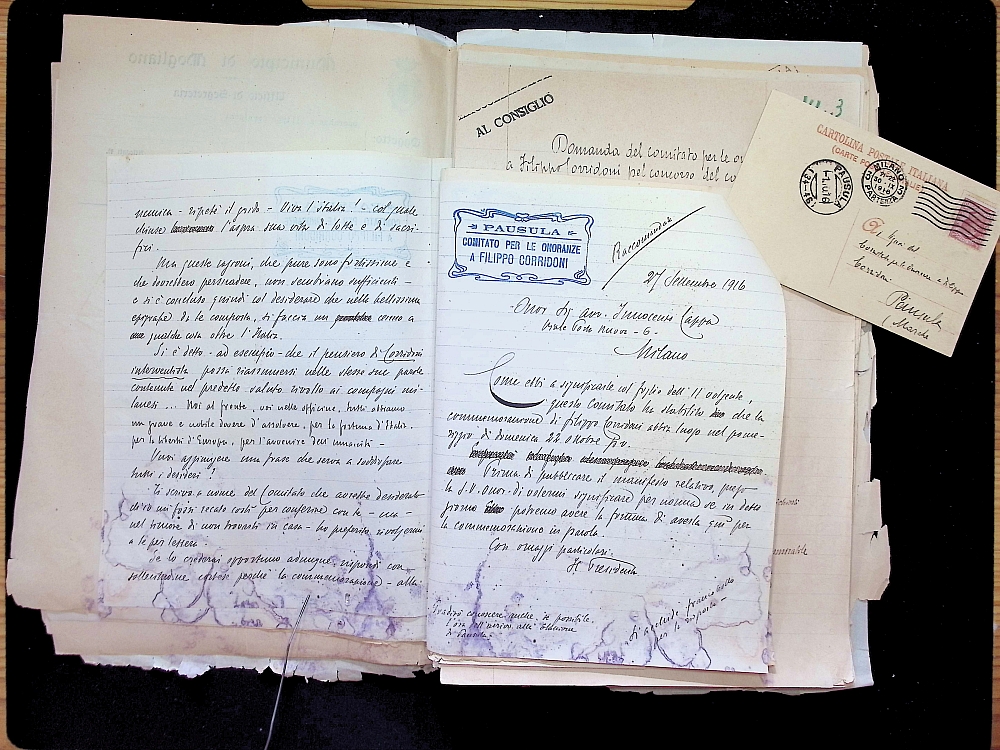 Municipio di Mogliano
Ufficio di Segreteria
nemica - ripetè il grido - Viva l'Italia! - col quale
chiuse l'aspra sua vita di lotte e di sacri-
fici.
Ma queste ragioni, che pure sono fortissime e
che dovrebbero persuadere, non sembrano sufficienti -
e si è concluso quindi col desiderare che nella bellissima
epigrafe da te composta, si faccia un cenno a
qualche cosa oltre l'Italia.
Si è detto - ad esempio - che il pensiero di Corridoni
interventista possa riassumersi nelle stesse sue parole
contenute nel predetto saluto rivolto ai compagni mi-
lanesi ... Noi al fronte, voi nelle officine, tutti abbiamo
un grave e nobile dovere d'assolvere, per la fortuna d'Italia,
per la libertà d'Europa, per l'avvenire dell'umanità -
Vuoi aggiungere una frase che serva a soddisfare
tutti i desideri?
Ti scrivo a nome del Comitato che avrebbe desiderato
ch'io mi fossi recato costì per conferire con te - ma -
nel timore di non trovarti in casa - ho preferito rivolgermi
a te per lettera.
Se lo crederai opportuno adunque, rispondi con
sollecitudine perchè la commemorazione - alla
AL CONSIGLIO
VI. 3
Domanda del comitato per le on
a Filippo Corridoni pel concorso del co
PAUSULA
COMITATO PER LE ONORANZE
A FILIPPO CORRIDONI
Raccomandata
27 Settembre 1916
Onor. Sig. avv. Innocenzo Cappa
Viale Porta Nuova - 6 -
Milano
Come ebbi a significarle col foglio dell'11 volgente,
questo Comitato ha stabilito che la
commemorazione di Filippo Corridoni abbia luogo nel pome-
riggio di domenica 22 Ottobre p.v.
Prima di pubblicare il manifesto relativo, prego
la S.V. Onor. di volermi significare per norma se in detto
giorno potremo avere la fortuna di averla qui per
la commemorazione in parola.
Con omaggi particolari.
Il Presidente
conoscere anche, se possibile,
l'ora dell'arrivo alla stazione
di Pausula.
Si acclude francobollo
per la risposta -
CARTOLINA POSTALE ITALIANA
(CARTE PO
PAUSULA
MILANO
1916
PARTENZA
Comitato per le Onoranze a Filippo
Corridoni
Pausula
(Marche)